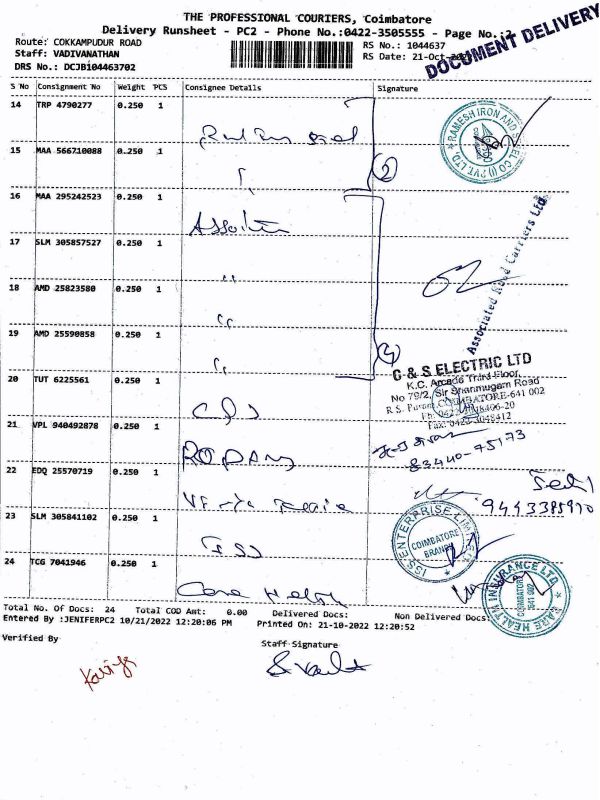 THE PROFESSIONAL COURIERS, Coimbatore
Delivery Runsheet - PC2 - Phone No.:0422-3505555 - Page No.:2
Route: COKKAMPUDUR ROAD
Staff: VADIVANATHAN
DRS No.: DCJB104463702
RS No.: 1044637
RS Date: 21-Oct-2022
DOCUMENT DELIVERY
S No Consignment No Weight PCS Consignee Details Signature
14 TRP 4790277 0.250 1
15 MAA 566710088 0.250 1
2
16 MAA 295242523 0.250 1
17 SLM 305857527 0.250 1
18 AMD 25823580 0.250 1
19 AMD 25590858 0.250 1
4
20 TUT 6225561 0.250 1
21 VPL 940492878 0.250 1
22 EDQ 25570719 0.250 1
23 SLM 305841102 0.250 1
24 TCG 7041946 0.250 1
Care Health
RAMESH IRON AND STEEL CO (I) PVT LTD.
Associated Road Carriers Ltd.
G & S ELECTRIC LTD
K.C. Arcade Third Floor,
No 79/2, Sir Shanmugam Road
R.S. Puram, COIMBATORE-641 002
83440-75173
ISS ENTERPRISE LIMITED
COIMBATORE
BRANCH
CARE HEALTH INSURANCE LTD
COIMBATORE
Total No. Of Docs: 24 Total COD Amt: 0.00 Delivered Docs: Non Delivered Docs:
Entered By :JENIFERPC2 10/21/2022 12:20:06 PM Printed On: 21-10-2022 12:20:52
Verified By Staff Signature